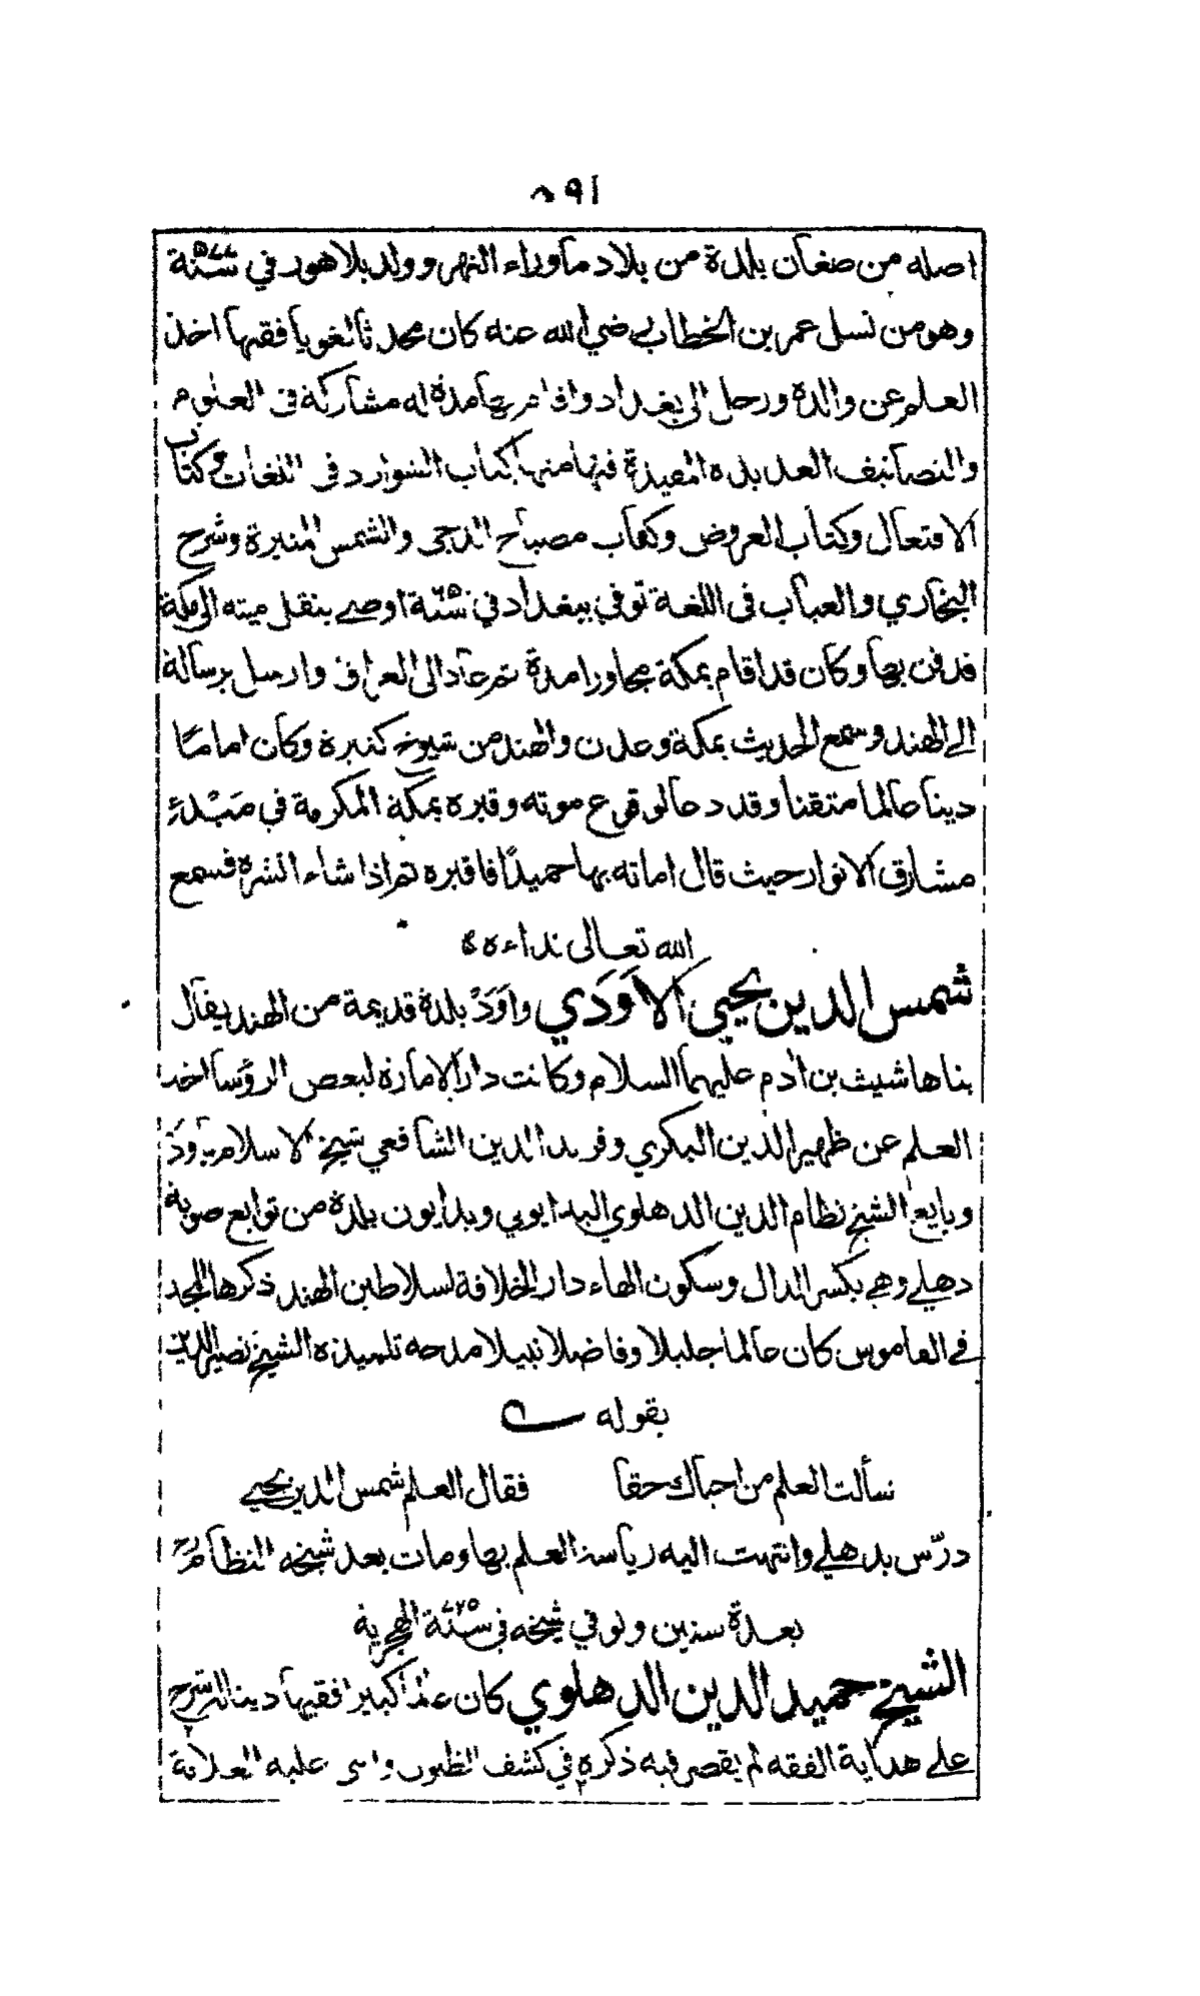 ٨٩١
اصله من صغان بلدة من بلاد ماوراء النهر وولد بلاهور في سنة ٥٧٧
وهو من نسل عمر بن الخطاب رضي الله عنه كان محدثا لغويا فقيها اخذ
العلم عن والده ورحل الى بغداد واقام بها مدة له مشاركة في العلوم
والتصانيف العديدة المفيدة فيها منها كتاب الشوارد في اللغات وكتاب
الافتعال وكتاب العروض وكتاب مصباح الدجى والشمس المنيرة وشرح
البخاري والعباب في اللغة توفي ببغداد في سنة ٦٥٠ اوصى بنقل ميته الى مكة
فدفن بها وكان قد اقام بمكة مجاورا مدة ثم عاد الى العراق وارسل برسالة
الى الهند وسمع الحديث بمكة وعدن والهند من شيوخ كثيرة وكان اماما
دينا عالما متقنا وقد دعا لوقوع موته وقبره بمكة المكرمة في مَبْدء
مشارق الانوار حيث قال اماته بها حميدًا فاقبره ثم اذا شاء انشره فسمع
الله تعالى نداءه
شمس الدين يحيى الاَوَدي واَوَدْ بلدة قديمة من الهند يقال
بناها شيث بن آدم عليهما السلام وكانت دار الامارة لبعض الرؤسا اخذ
العلم عن ظهير الدين البكري وفريد الدين الشافعي شيخ الاسلام باودَ
وبايع الشيخ نظام الدين الدهلوي البدايوني وبدايون بلدة من توابع صوبة
دهلي وهي بكسر الدال وسكون الهاء دار الخلافة لسلاطين الهند ذكرها المجد
في القاموس كان عالما جليلا وفاضلا نبيلا مدحه تلميذه الشيخ نصير الدين
بقوله
سألت العلم من احياك حقا فقال العلم شمس الدين يحيى
درّس بدهلي وانتهت اليه رياسة العلم بها ومات بعد شيخه النظام
بعدة سنين وتوفي شيخه في سنة ٧٢٥ الهجرية
الشيخ حميد الدين الدهلوي كان عالما كبيرا فقيها دينا له شرح
على هداية الفقه لم يقصر فيه ذكره في كشف الظنون واثنى عليه العلامة